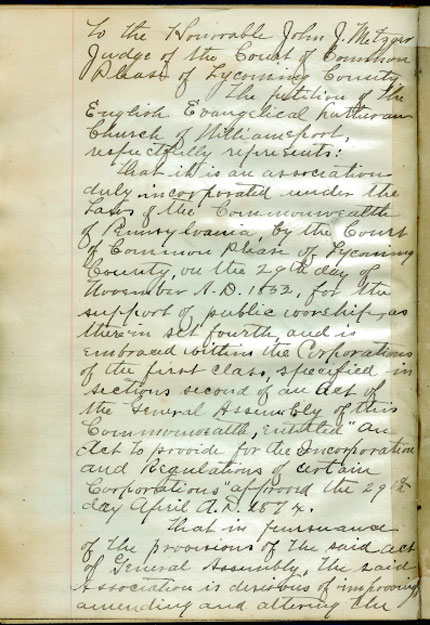 To the Honorable John J. Metzger
Judge of the Court of Common
Pleas of Lycoming County
The petition of the
English Evangelical Lutheran
Church of Williamsport,
respectfully represents:
That it is an association
duly incorporated under the
Laws of the Commonwealth
of Pennsylvania, by the Court
of Common Pleas of Lycoming
County, on the 29th day of
November A.D. 1852, for the
support of public worship, as
therein set fourth, and is
embraced within the Corporations
of the first class, specified in
sections second of an Act of
the General Assembly of this
Commonwealth, entitled "An
Act to provide for the Incorporation
and Regulations of certain
Corporations" approved the 29th
day April A.D. 1874.
That in pursuance
of the provisions of the said act
of General Assembly, the said
Association is desirous of improving
amending and altering the